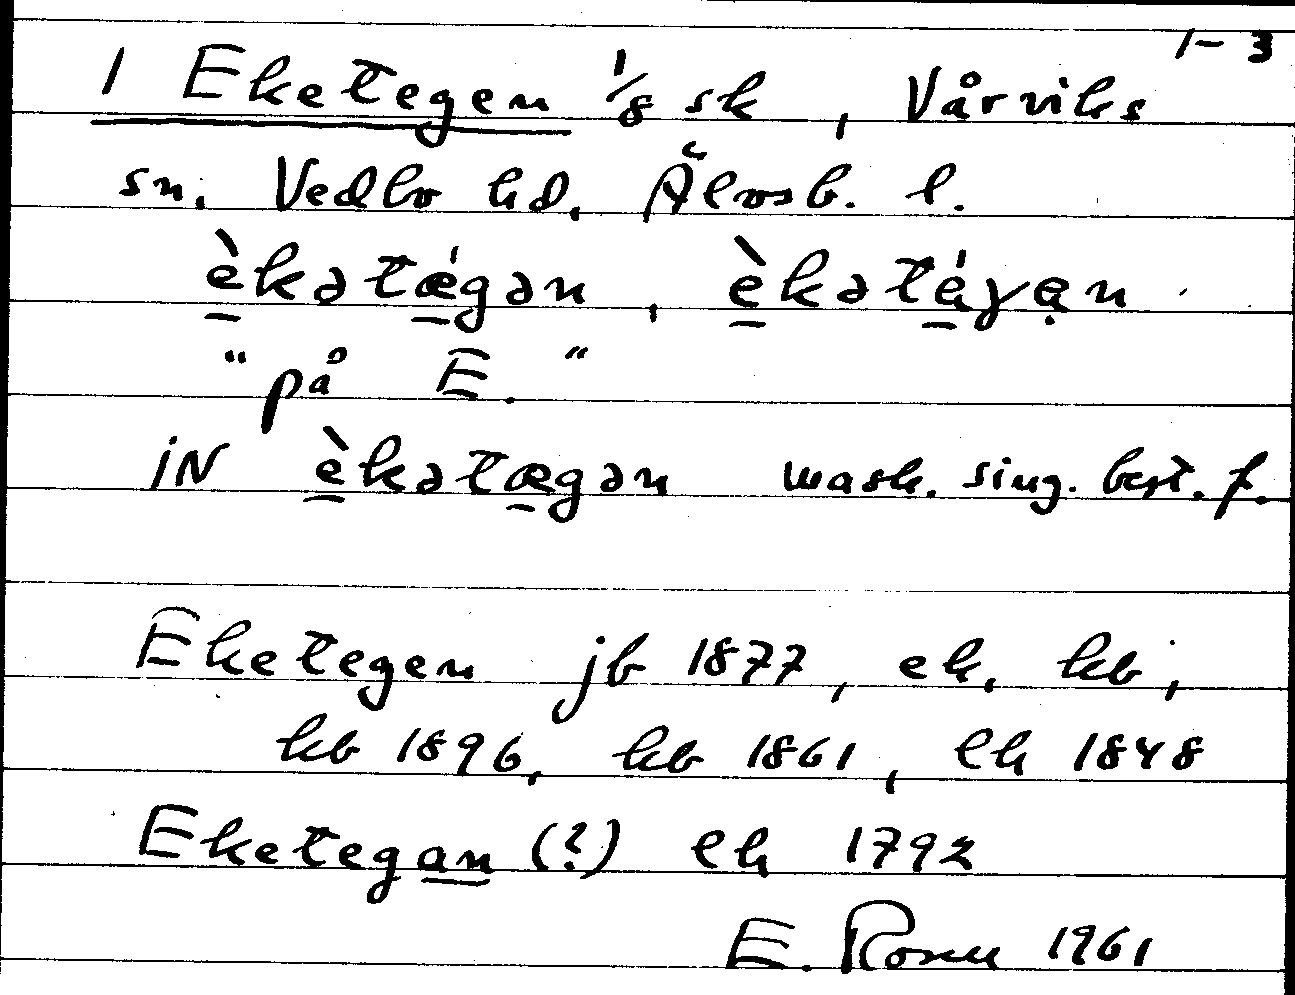 1-3
1 Eketegen 1/8 sk, Vårviks
sn. Vedbo hd. Älvsb. l.
èkətǽgən, èkətéγən
"på E."
iN èkətægən mask. sing. best. f.
Eketegen jb 1877, ek. kb,
kb 1896, kb 1861, lh 1848
Eketegan (?) lh 1792
E. Rosen 1961